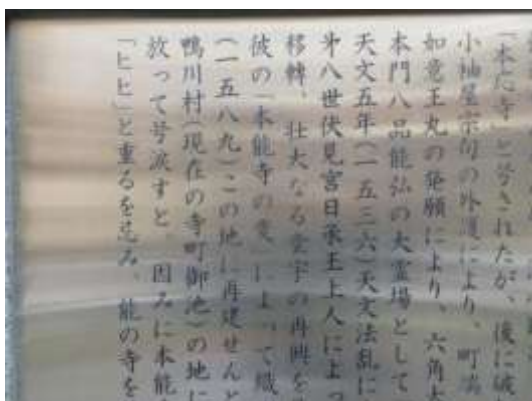 「本応寺」と号されたが、後に破
小袖屋宗句の外護により、町端
如意王丸の発願により、六角大
本門八品能弘の大霊場として
天文五年(一五三六)天文法乱に
第八世伏見宮日承王上人によっ
移転、壮大なる堂宇の再興を
彼の「本能寺の変」によって織
(一五八九)この地に再建せんと
鴨川村(現在の寺町御池)の地に
放って号涙すと 因みに本能
「ヒヒ」と重るを忌み、能の寺を